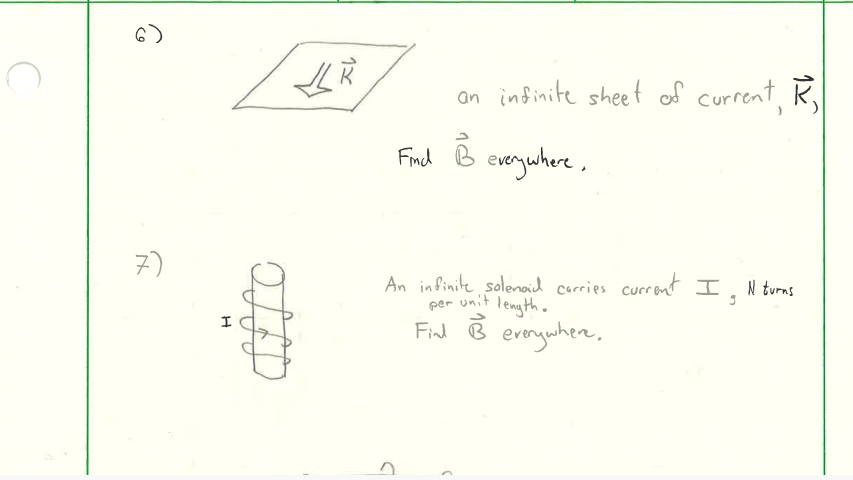 6)
K⃗
an infinite sheet of current, K⃗,
Find B⃗ everywhere.
7)
An infinite solenoid carries current I, N turns
per unit length.
I
Find B⃗ everywhere.